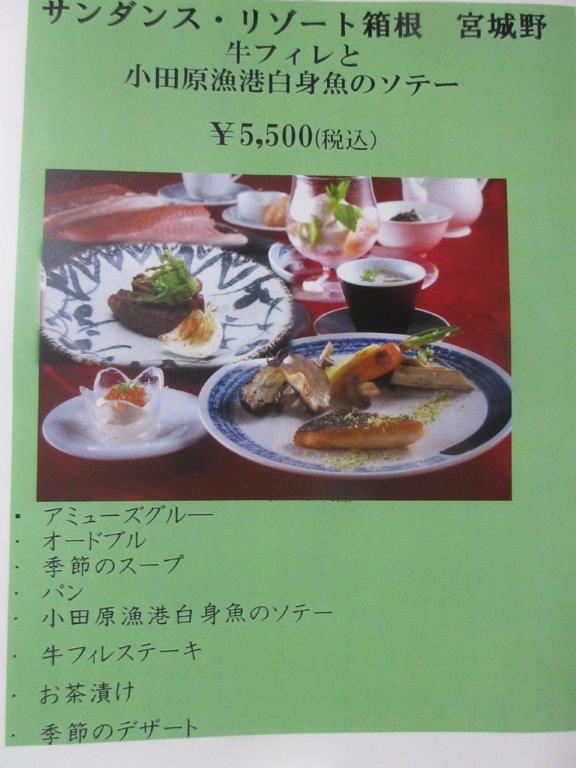 サンダンス・リゾート箱根　宮城野
牛フィレと
小田原漁港白身魚のソテー
￥5,500(税込)
・アミューズグルー
・オードブル
・季節のスープ
・パン
・小田原漁港白身魚のソテー
・牛フィレステーキ
・お茶漬け
・季節のデザート